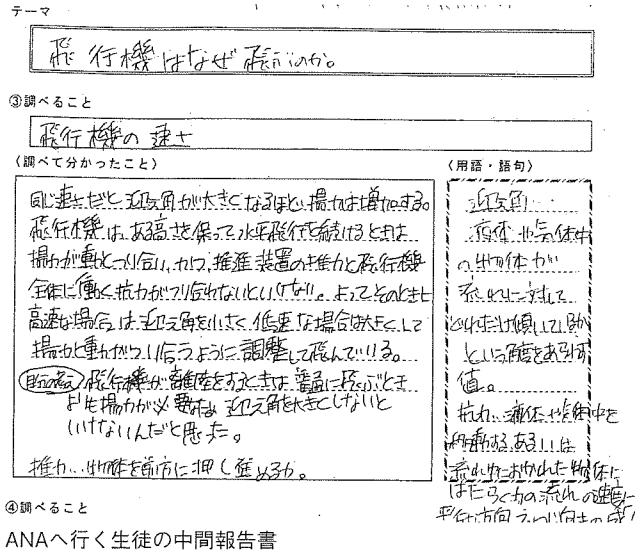 テーマ
飛行機はなぜ飛ぶのか。
③調べること
飛行機の速さ
〈調べて分かったこと〉
同じ速さだと迎え角が大きくなるほど、揚力は増加する。
飛行機は、ある高さを保って水平飛行を続けるときは
揚力が重力とつり合い、かつ、推進装置の推力と飛行機
全体に働く抗力がつり合わないといけない。よってそのときに
高速な場合は迎え角を小さく低速な場合は大きくして
揚力と重力がつり合うように調整して飛んでいる。
飛行機が離陸をするときは普通に飛ぶとき
よりも揚力が必要なため迎え角を大きくしないと
いけないんだと思った。
推力…物体を前方に押し進める力。
〈用語・語句〉
迎え角…
液体や気体中
の物体が
流れに対して
どれだけ傾いているか
という角度をあらわす
値。
抗力…液体や気体中を
移動するあるいは
流れ中におかれた物体に
はたらく力の流れの速度に
平行な方向
④調べること
ANAへ行く生徒の中間報告書